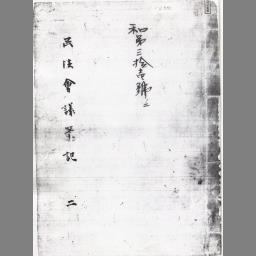 和第三拾壱號ノ二
民法會議筆記 二